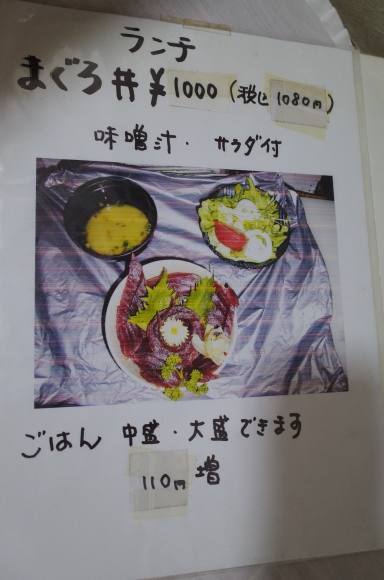 ランチ
まぐろ丼 ¥1000 (税込1080円)
味噌汁・サラダ付
ごはん 中盛・大盛できます
110円増